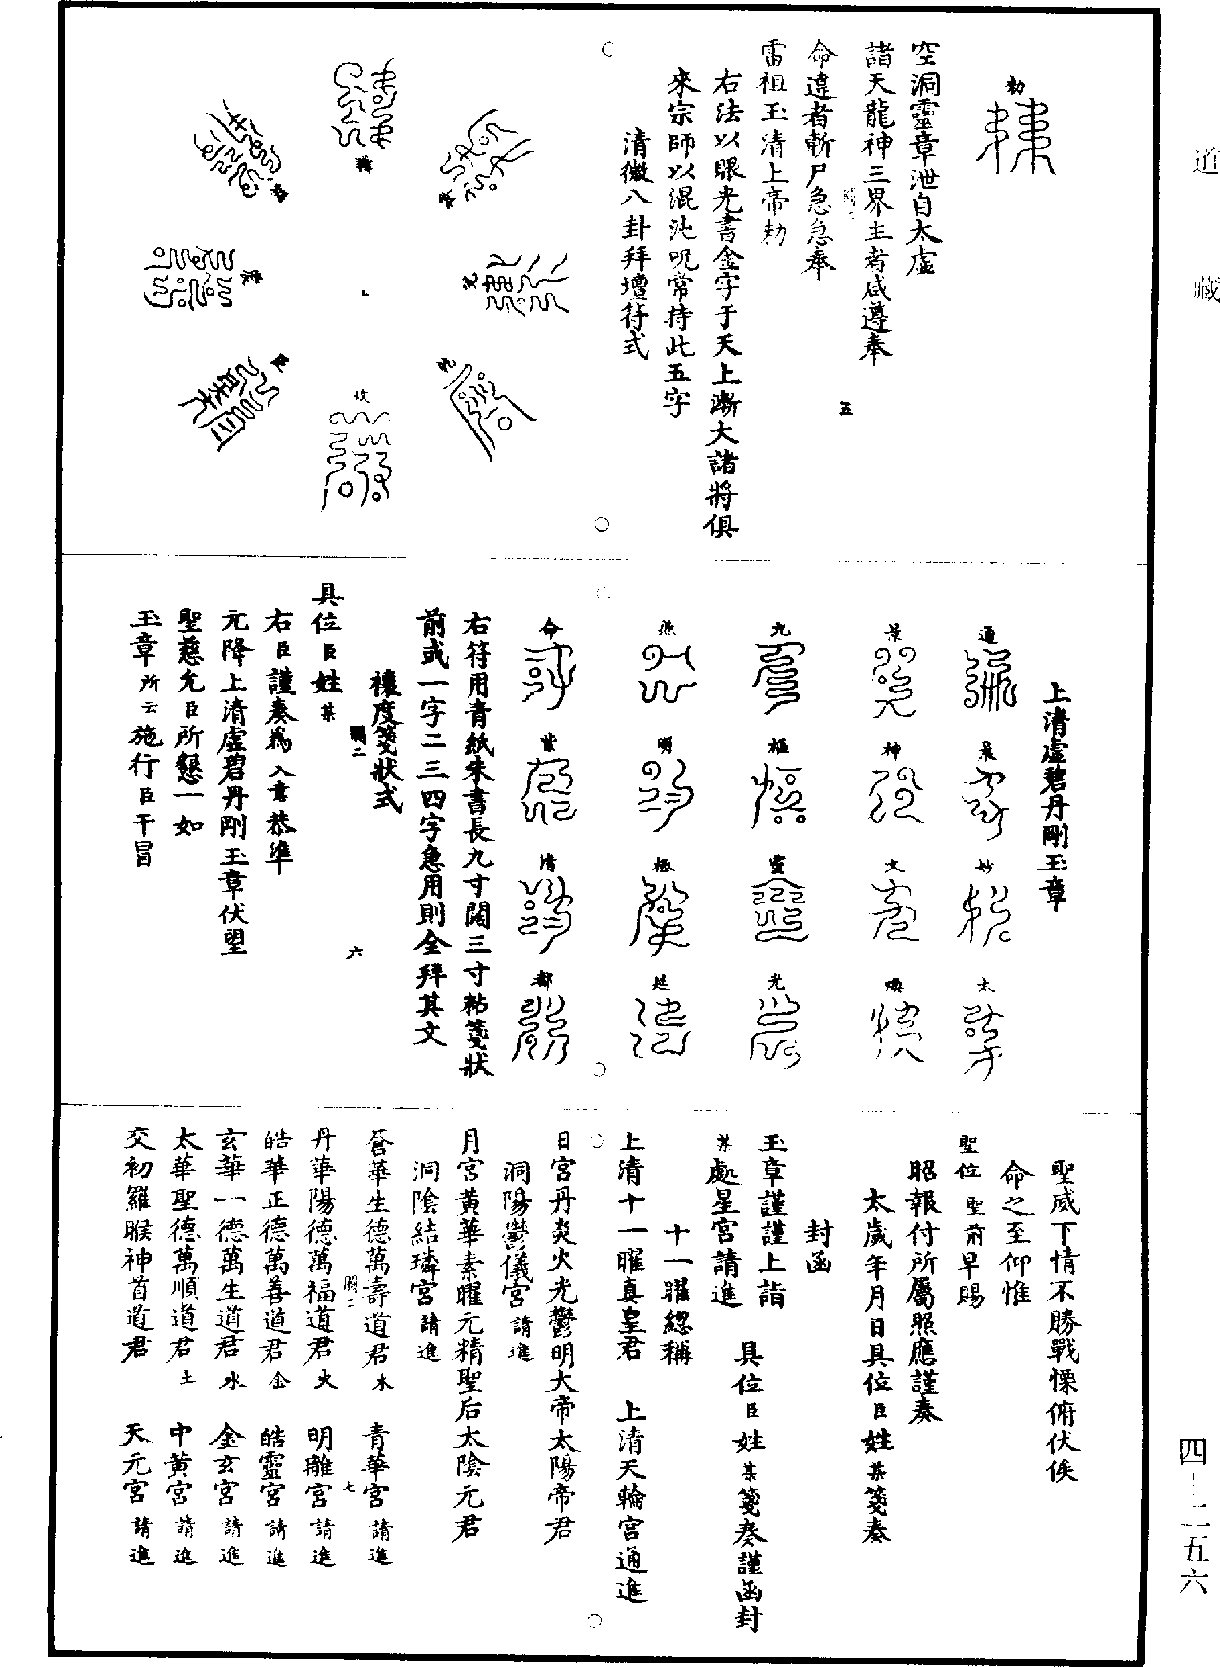 道藏
勑
空洞靈章泄自太虛
諸天龍神三界主者咸遵奉
命違者斬尸急急奉
雷祖玉清上帝勑
右法以眼光書金字于天上漸大諸將俱
來宗師以混沌呪常持此五字
清微八卦拜壇符式
五
上清虛碧丹剛玉章
通 景 妙 太
景 神 文 煥
九 極 靈 光
明 極 延
命 紫 清 都
右符用青紙朱書長九寸闊三寸粘箋狀
前或一字二三四字急用則全拜其文
禳度箋狀式
六
具位臣姓某
右臣謹奏爲入意恭準
元降上清虛碧丹剛玉章伏望
聖慈允臣所懇一如
玉章所云施行臣干冒
聖威下情不勝戰慄俯伏俟
命之至仰惟
聖位聖前早賜
昭報付所屬照應謹奏
太歲年月日具位臣姓某箋奏
封函
玉章謹謹上詣 具位臣姓某箋奏謹函封
某處星宮請進
十一曜總稱
上清十一曜真皇君 上清天輪宮通進
日宮丹炎火光鬱明大帝太陽帝君
洞陽鬱儀宮請進
月宮黃華素曜元精聖后太陰元君
洞陰結璘宮請進
蒼華生德萬壽道君木 青華宮請進
七
丹華陽德萬福道君火 明離宮請進
皓華正德萬善道君金 皓靈宮請進
玄華一德萬生道君水 金玄宮請進
太華聖德萬順道君土 中黃宮請進
交初羅睺神首道君 天元宮請進
四—二五六